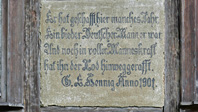 Er hat geschafft hier manches Jahr
Ein bieder Deutscher Mann er war
Und noch in voller Manneskraft
hat ihn der Tod hinweggerafft.
G. L. Honnig Anno 1901.